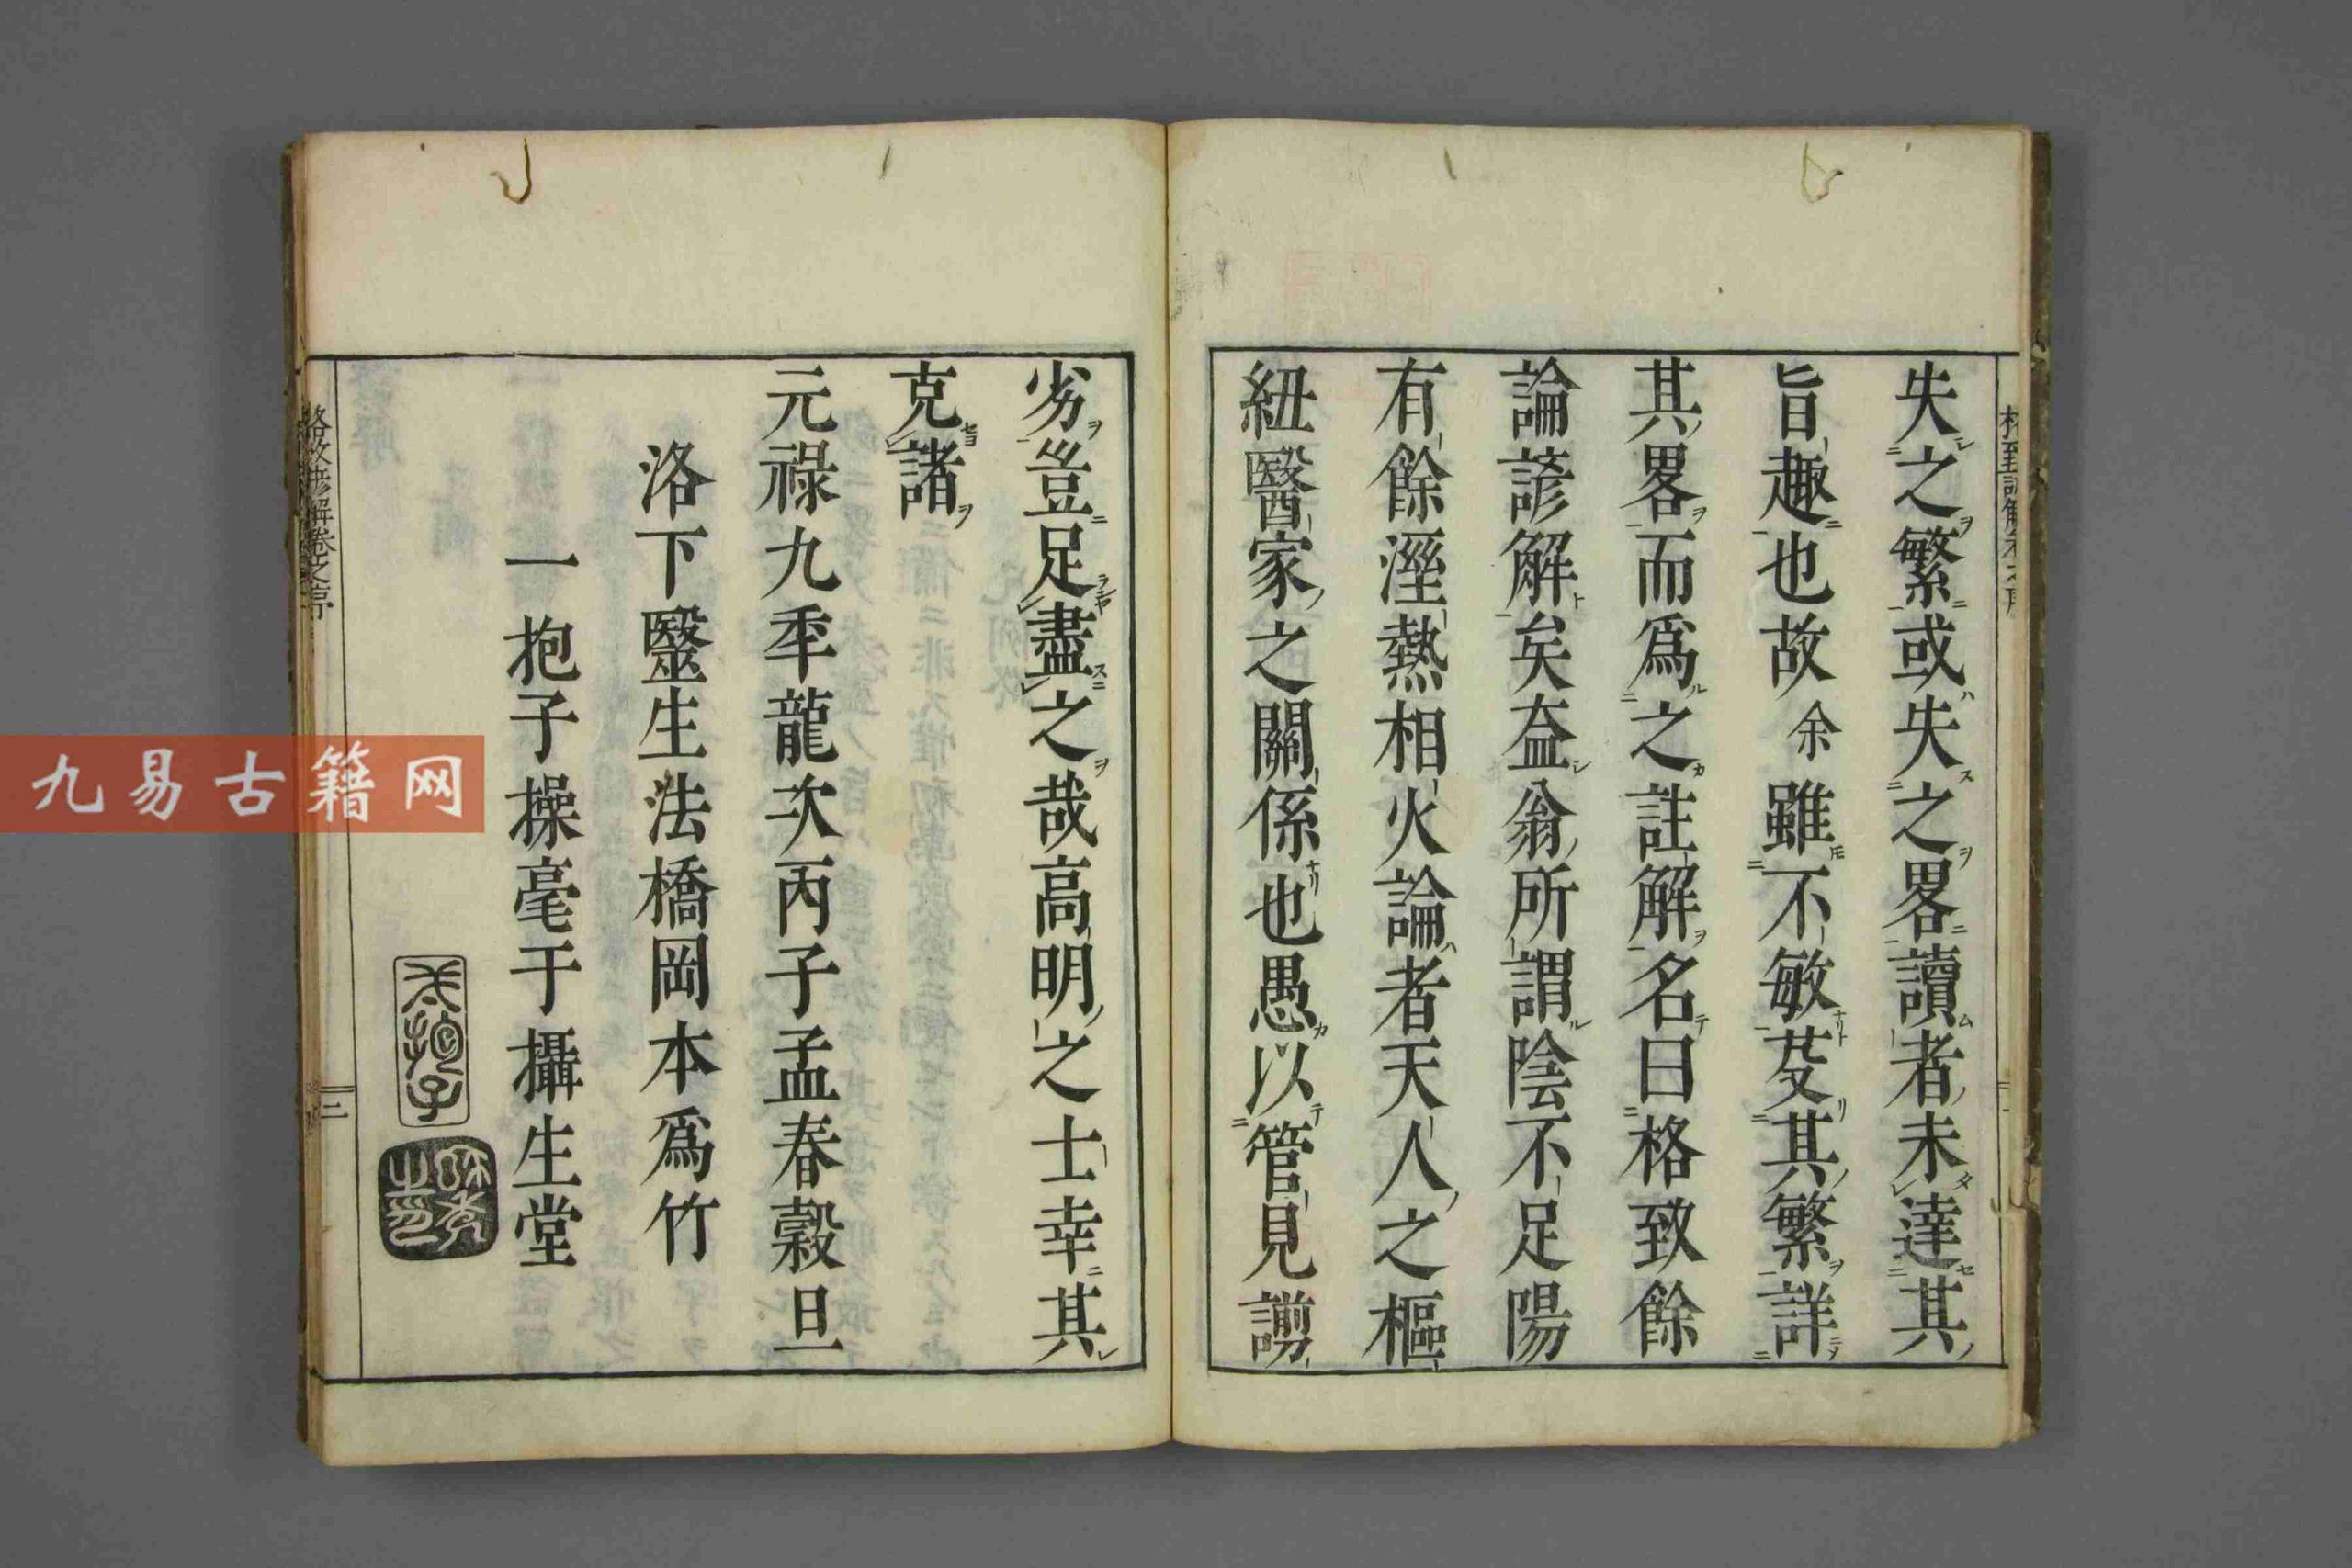 失之繁或失之畧讀者未達其
旨趣也故余雖不敏芟其繁詳
其畧而爲之註解名曰格致餘
論諺解矣葢翁所謂陰不足陽
有餘溼熱相火論者天人之樞
紐醫家之關係也愚以管見謭
劣豈足盡之哉高明之士幸其
克諸
元祿九季龍次丙子孟春穀旦
洛下毉生法橋岡本爲竹
一抱子操毫于攝生堂
一抱子
格致諺解卷之序
二
九易古籍网